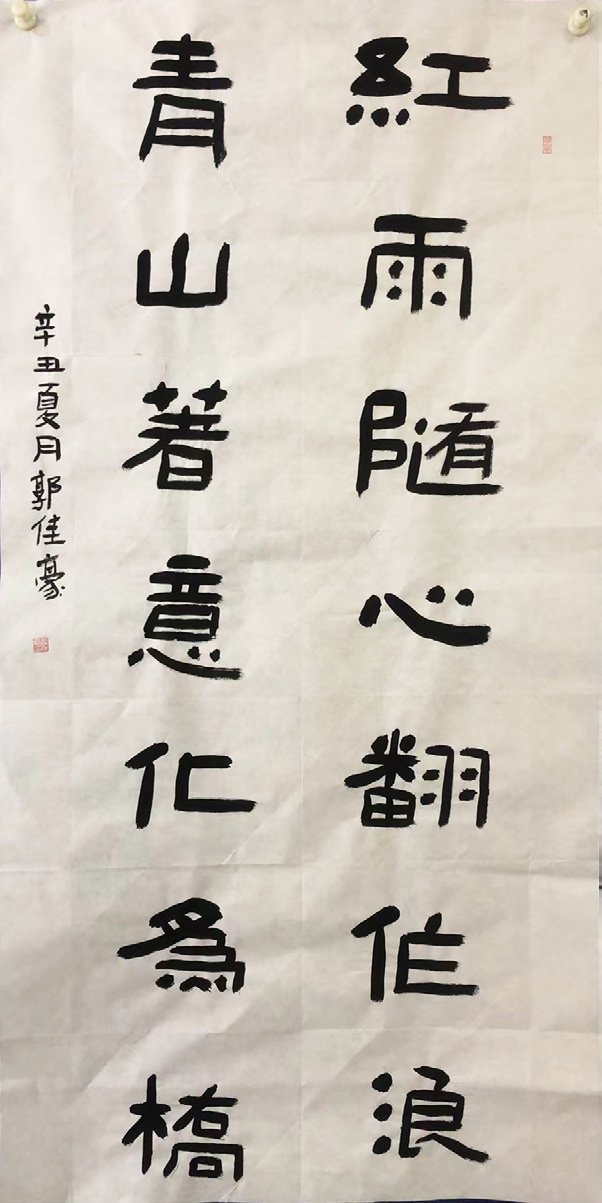 紅雨隨心翻作浪
青山著意化為橋
辛丑夏月郭佳豪